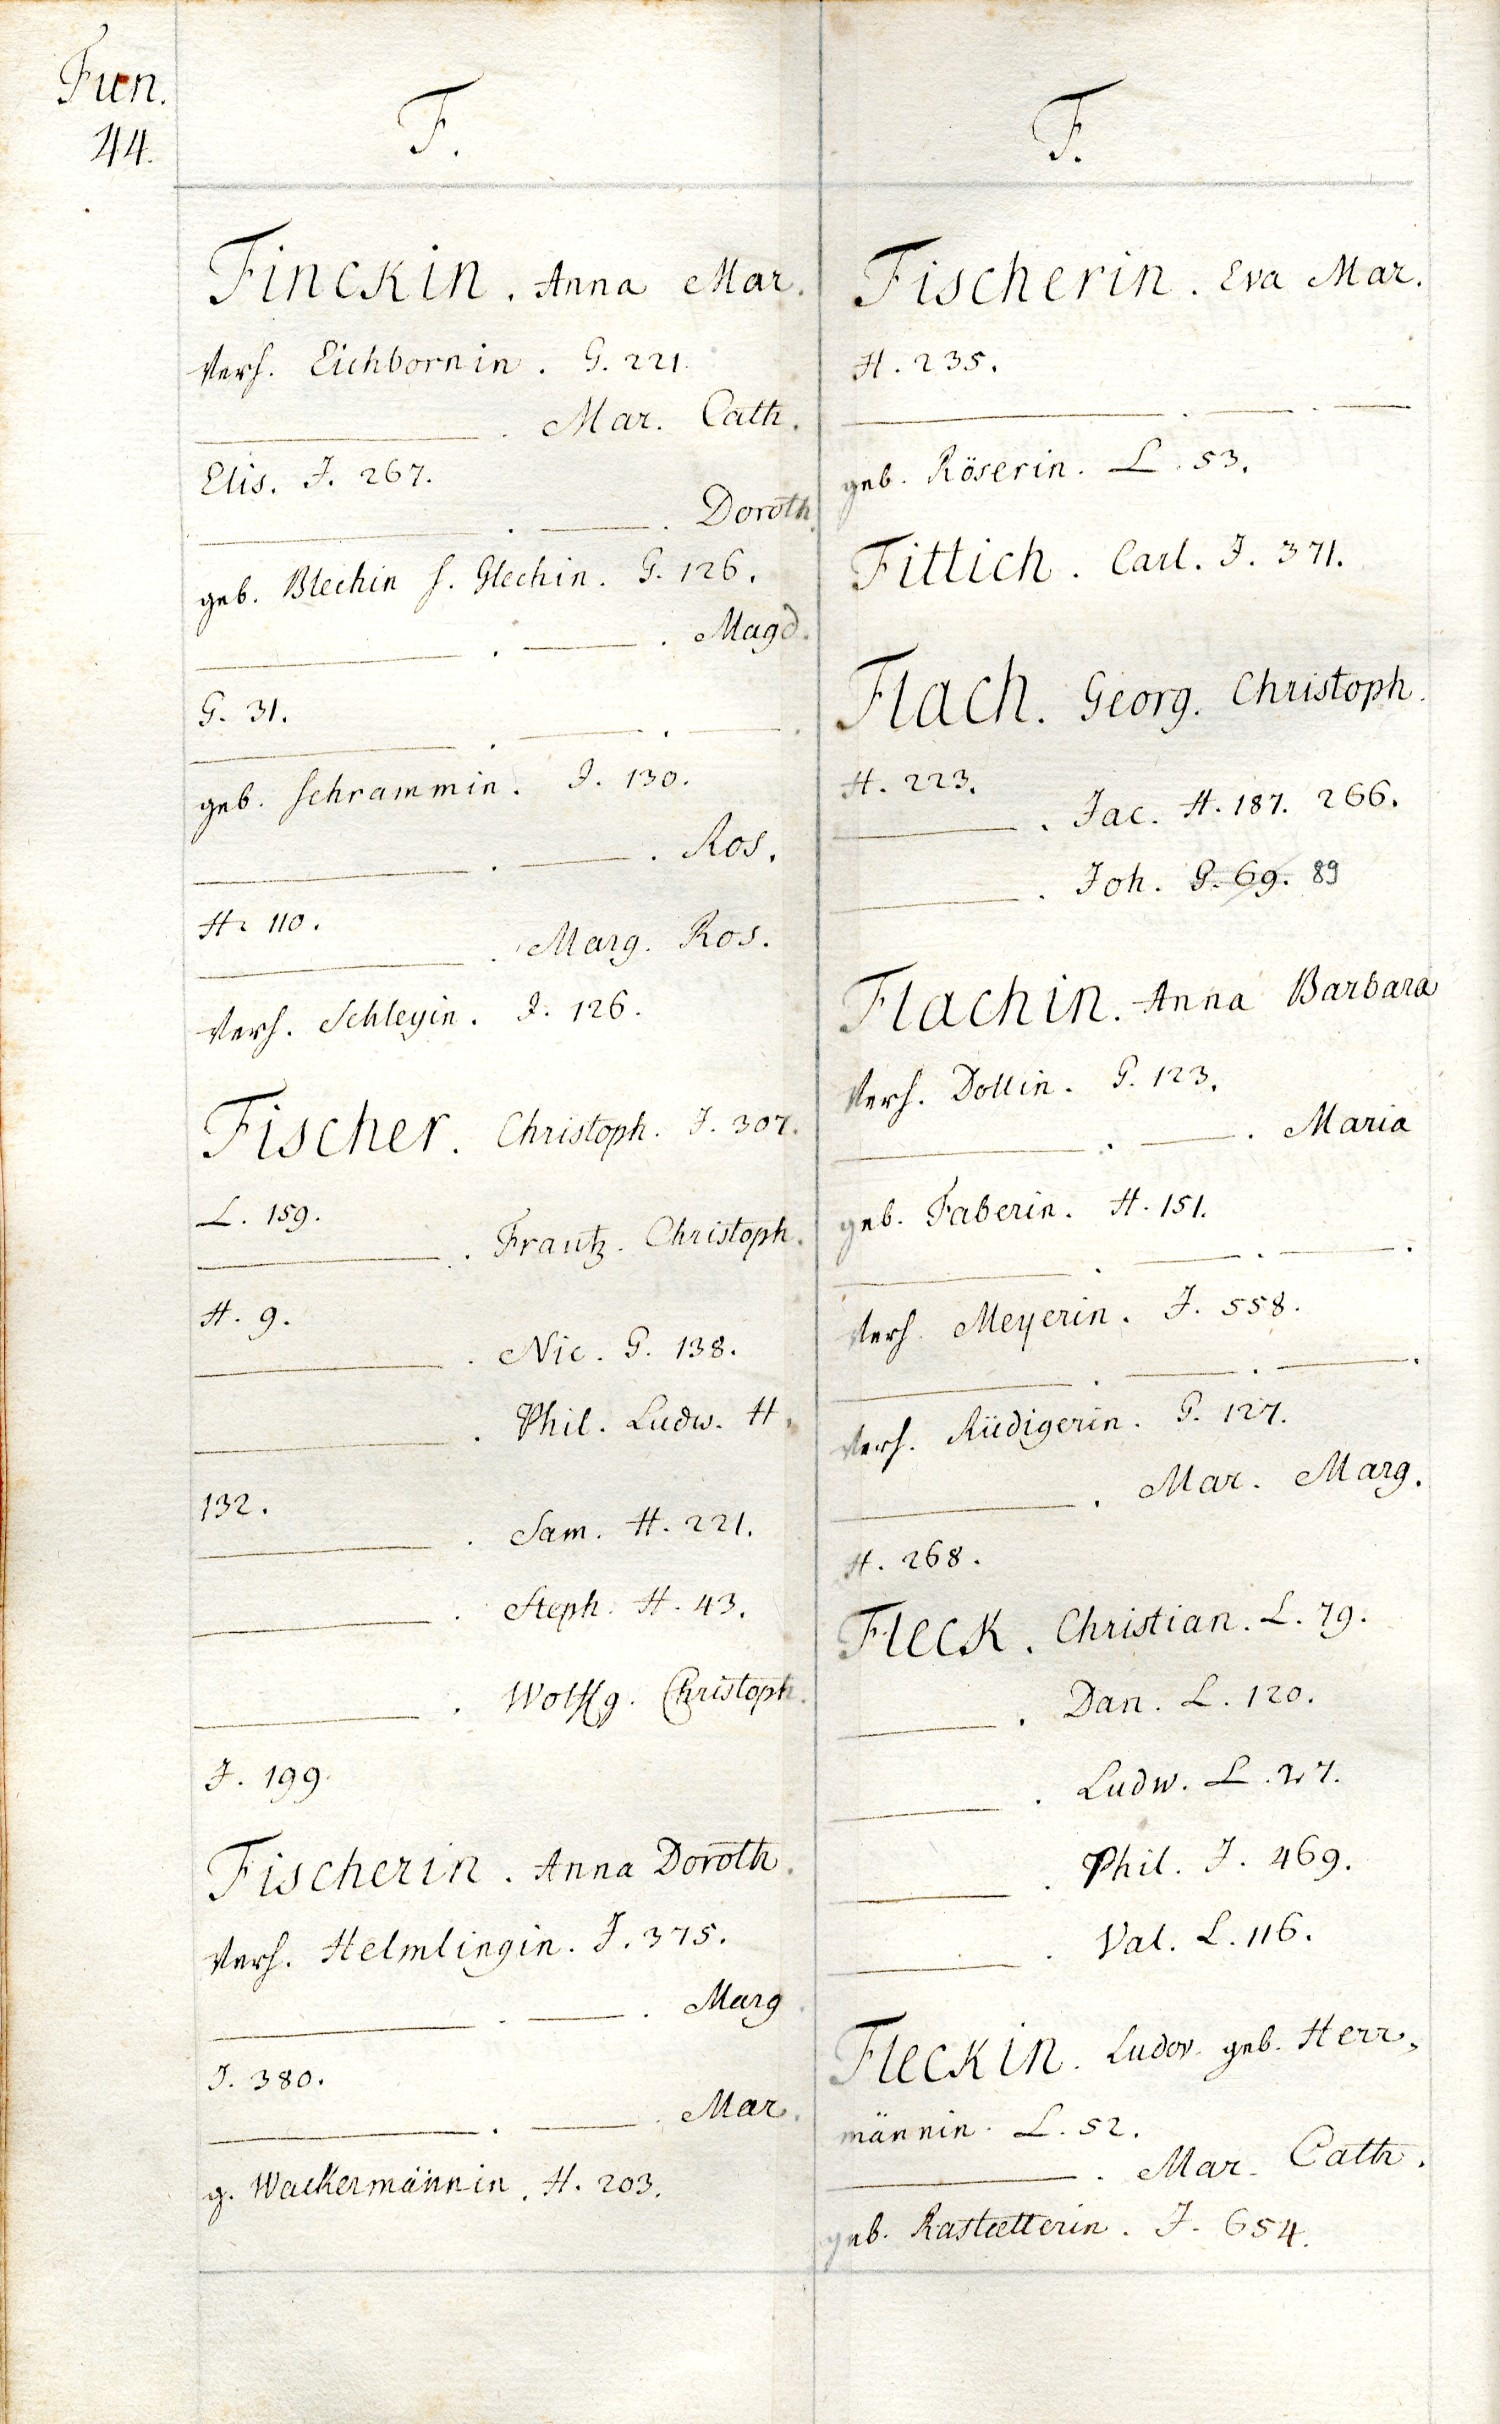 Fun.
44.
F.
Finckin. Anna Mar.
Verh. Eichbornin. G. 221.
———. Mar. Cath.
Elis. J. 267.
———. ———. Doroth.
geb. Blechin s. Glechin. G. 126.
———. ———. Magd.
G. 31.
———. ———. ———.
geb. Schrammin. J. 130.
———. ———. Ros.
H. 110.
———. Marg. Ros.
Verh. Schleyin. J. 126.
Fischer. Christoph. J. 307.
L. 159.
———. Frantz. Christoph.
H. 9.
———. Nic. G. 138.
———. Phil. Ludw. H.
132.
———. Sam. H. 221.
———. Steph. H. 43.
———. Wolffg. Christoph.
J. 199.
Fischerin. Anna Doroth.
Verh. Helmlingin. J. 375.
———. ———. Marg.
J. 380.
———. ———. Mar.
g. Wackermännin. H. 203.
F.
Fischerin. Eva Mar.
H. 235.
———. ———. ———
geb. Röserin. L. 53.
Fittich. Carl. J. 371.
Flach. Georg. Christoph.
H. 223.
———. Jac. H. 187. 266.
———. Joh. G. 69. 89
Flachin. Anna Barbara
Verh. Dollin. G. 123.
———. ———. Maria
geb. Faberin. H. 151.
———. ———. ———.
Verh. Meyerin. J. 558.
———. ———. ———.
Verh. Rüdigerin. G. 127.
———. Mar. Marg.
H. 268.
Fleck. Christian. L. 79.
———. Dan. L. 120.
———. Ludw. L. 27.
———. Phil. J. 469.
———. Val. L. 116.
Fleckin. Ludov. geb. Herr-
männin. L. 52.
———. Mar. Cath.
geb. Rastætterin. J. 654.